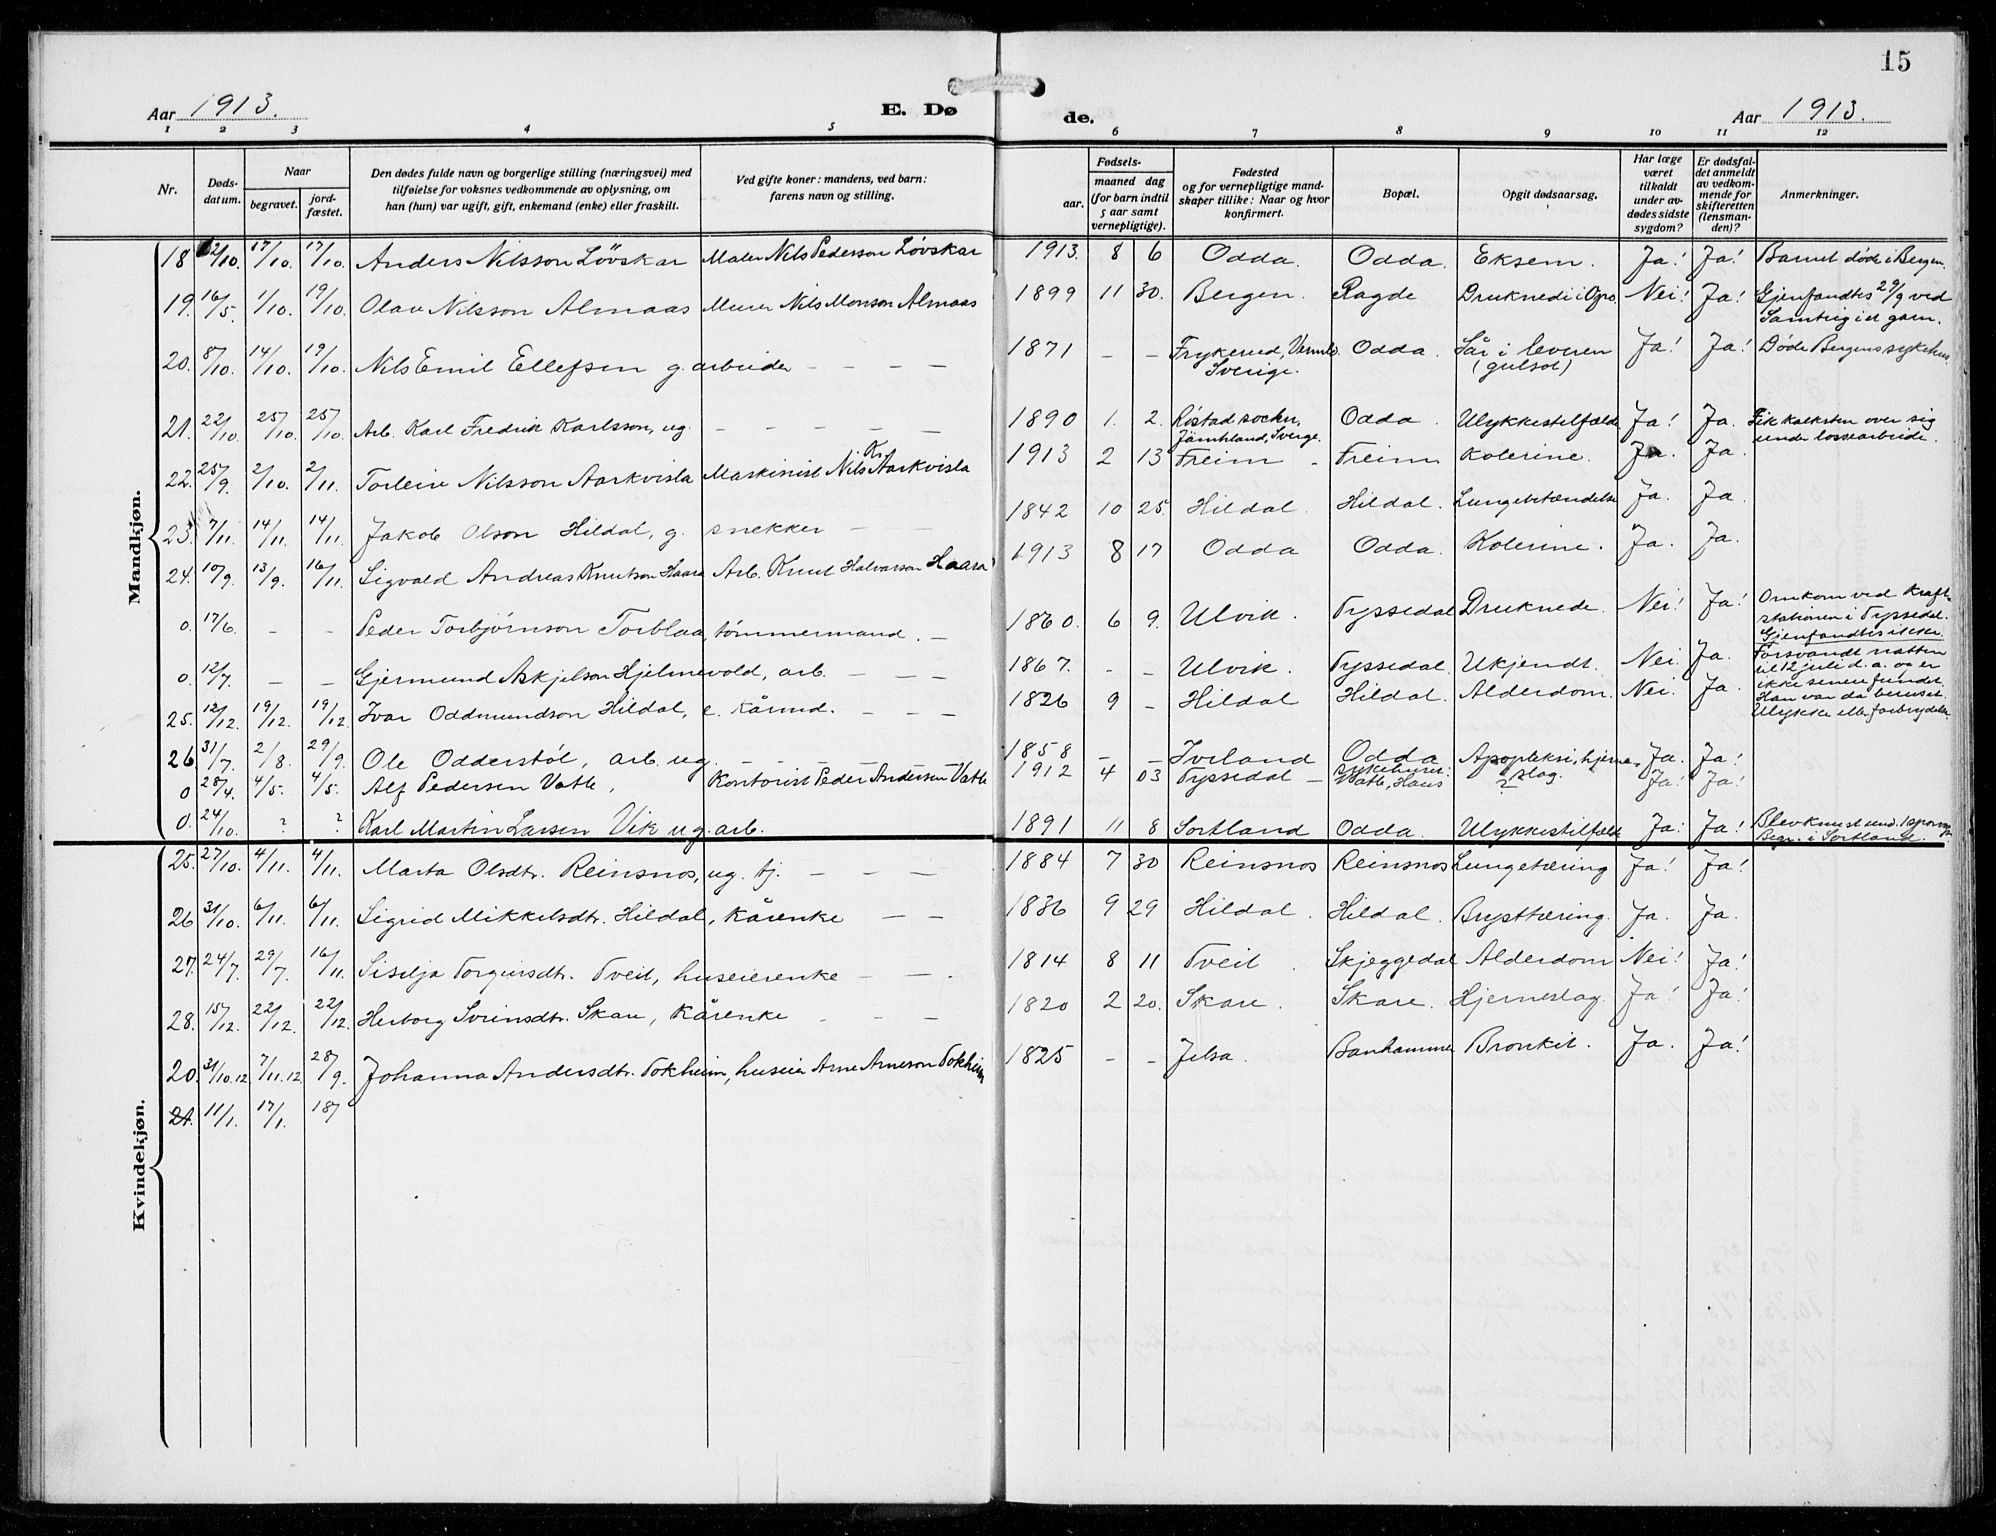 15
Aar 1913. E. Døde. Aar 1913.
1 2 3 4 5 6 7 8 9 10 11 12
Nr. Dødsdatum. Naar begravet. jordfæstet. Den dødes fulde navn og borgerlige stilling (næringsvei) med tilføielse for voksnes vedkommende av oplysning, om han (hun) var ugift, gift, enkemand (enke) eller fraskilt. Ved gifte koner: mandens, ved barn: farens navn og stilling. Fødsels- aar. maaned dag (for barn indtil 5 aar samt vernepligtige). Fødested og for vernepligtige mandskaper tillike: Naar og hvor konfirmert. Bopæl. Opgit dødsaarsag. Har læge været tilkaldt under avdødes sidste sygdom? Er dødsfaldet anmeldt av vedkommende for skifteretten (lensmanden)? Anmerkninger.
Mandkjøn.
18 12/10. 17/10. 17/10. Anders Nilsson Løvskar Maler Nils Pederson Løvskar 1913. 8 6 Odda. Odda. Eksem. Ja! Ja! Barnet døde i Bergen.
19. 16/5. 1/10. 19/10. Olav Nilsson Almaas Murer Nils Monson Almaas 1899 11 30. Bergen. Ragde Druknede i Opo. Nei! Ja! Gjenfandtes 29/9 ved Samtrig i et garn.
20. 8/10. 14/10. 19/10. Nils Emil Ellefsen g. arbeider – – – – 1871 – – Frykerud, Verml. Sverige. Odda. Sår i leveren (gulsot) Ja! Ja! Døde Bergens sykehus
21. 22/10. 25/10. 25/10. Arb. Karl Fredrik Karlsson, ug. – – – – – 1890 1. 2. Røstad socken, Jämtland, Sverge. Odda. Ulykkestilfælde Ja! Ja. Fik kalksten over sig under lossearbeide.
22. 25/9. 2/10. 2/11. Torleiv Nilsson Aarkvisla Maskinist Nils K. Aarkvisla 1913 2 13 Freim – Freim Kolerine. Ja. Ja.
23. 7/11. 14/11. 14/11. Jakob Olson Hildal, g. snekker – – 1842 10 25. Hildal. Hildal. Lungebetændelse Ja. Ja.
24. 10/9. 13/9. 16/11. Sigvald Andreas Knutson Haara Arb. Knut Halvarson Haara 1913 8 17 Odda Odda. Kolerine. Ja. Ja.
0. 17/6. – – Peder Torbjørnson Torblaa, tømmermand. – 1860. 6 9. Ulvik. Tyssedal Druknede. Nei! Ja! Omkom ved kraftstationen i Tyssedal. Gjenfandtes ikke.
0. 12/7. – – Gjermund Askjelson Hjelmevold, arb. – – – 1867. – – Ulvik. Tyssedal Ukjendt. Nei. Ja. Forsvandt natten til 12 juli d. a. og er ikke senere fundet. Han var da beruset. Ulykke eller forbrydelse.
25. 12/12. 19/12. 19/12. Ivar Oddmundson Hildal, e. kårmd. – – – 1826 9 – Hildal Hildal. Alderdom. Nei. Ja.
26 31/7. 2/8. 29/9. Ole Odderstøl, arb. ug. – – – – – 1858 – – Iveland Odda sykehuset. Apopleksi, hjerneslag. Ja. Ja!
0 28/4. 4/5. 4/5. Alf Pedersen Vatle, Kontorist Peder Andersen Vatle 1912 4 03 Tyssedal – Vatle, Haus ? Ja! Ja!
0. 24/10. ? ? Karl Martin Larsen Vik ug. arb. 1891 11 8 Sortland Odda. Ulykkestilfælde Ja. Ja! Blev knust und. Begr. i Sortland.
Kvindekjøn.
25. 27/10. 4/11. 4/11. Marta Olsdtr. Reinsnos, ug. tj. – – – 1884 7 30 Reinsnos Reinsnos Lungetæring Ja! Ja!
26 31/10. 6/11. 6/11. Sigrid Mikkelsdtr. Hildal, kårenke – – 1836 9 29 Hildal. Hildal. Brysttæring. Ja. Ja.
27. 24/7. 29/7. 16/11. Siselja Torgeirsdtr. Tveit, huseierenke – – . 1814 8 11 Tveit. Skjeggedal Alderdom Nei! Ja!
28. 15/12. 22/12. 22/12. Herborg Sveinsdtr. Skare, kårenke – – 1820 2 20. Skare. Skare. Hjerneslag. Ja! Ja!
20. 31/10.12 7/11.12. 28/9. Johanna Andersdtr. Tokheim, huseier Arne Arneson Tokheim 1825 – – Jelsa. Banhammer Bronkit. Ja. Ja!
21. 11/1. 17/1. 187